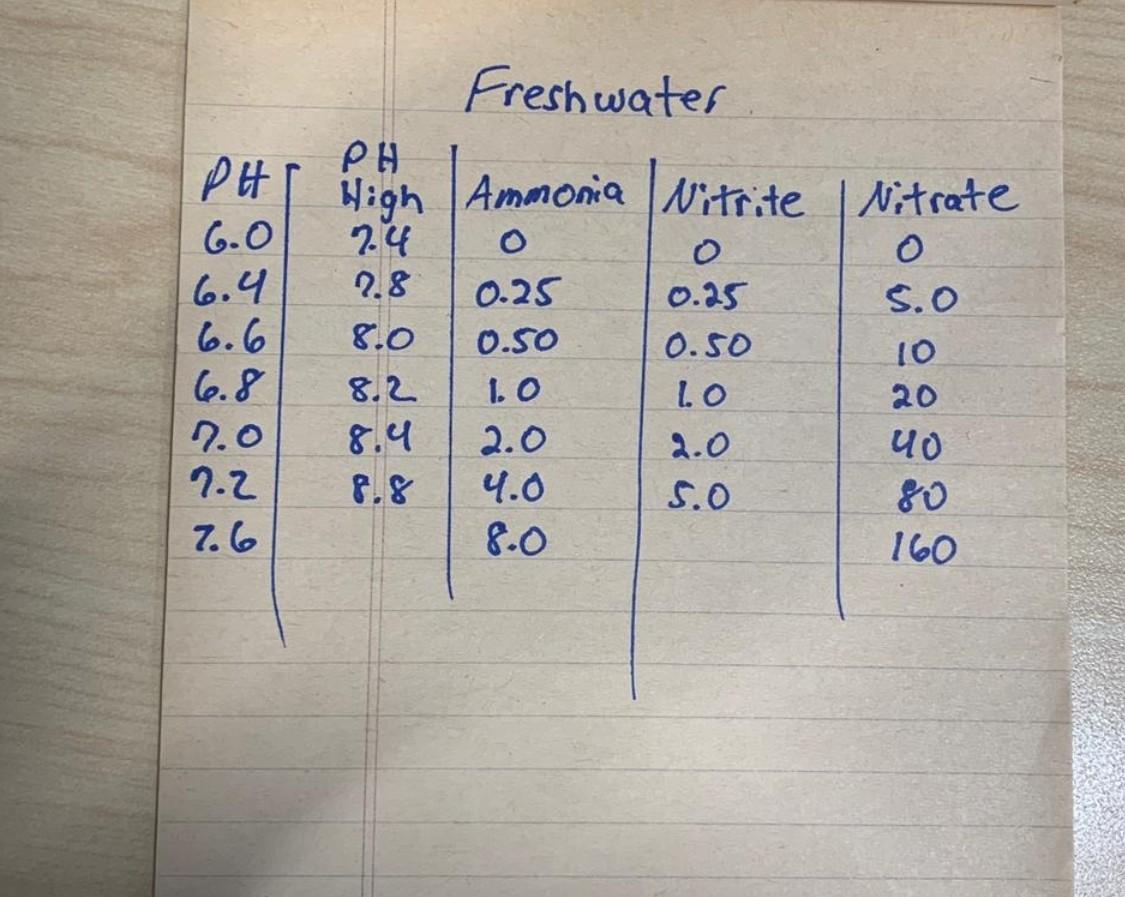 Freshwater
PH | PH High | Ammonia | Nitrite | Nitrate
6.0 | 7.4 | 0 | 0 | 0
6.4 | 7.8 | 0.25 | 0.25 | 5.0
6.6 | 8.0 | 0.50 | 0.50 | 10
6.8 | 8.2 | 1.0 | 1.0 | 20
7.0 | 8.4 | 2.0 | 2.0 | 40
7.2 | 8.8 | 4.0 | 5.0 | 80
7.6 | | 8.0 | | 160